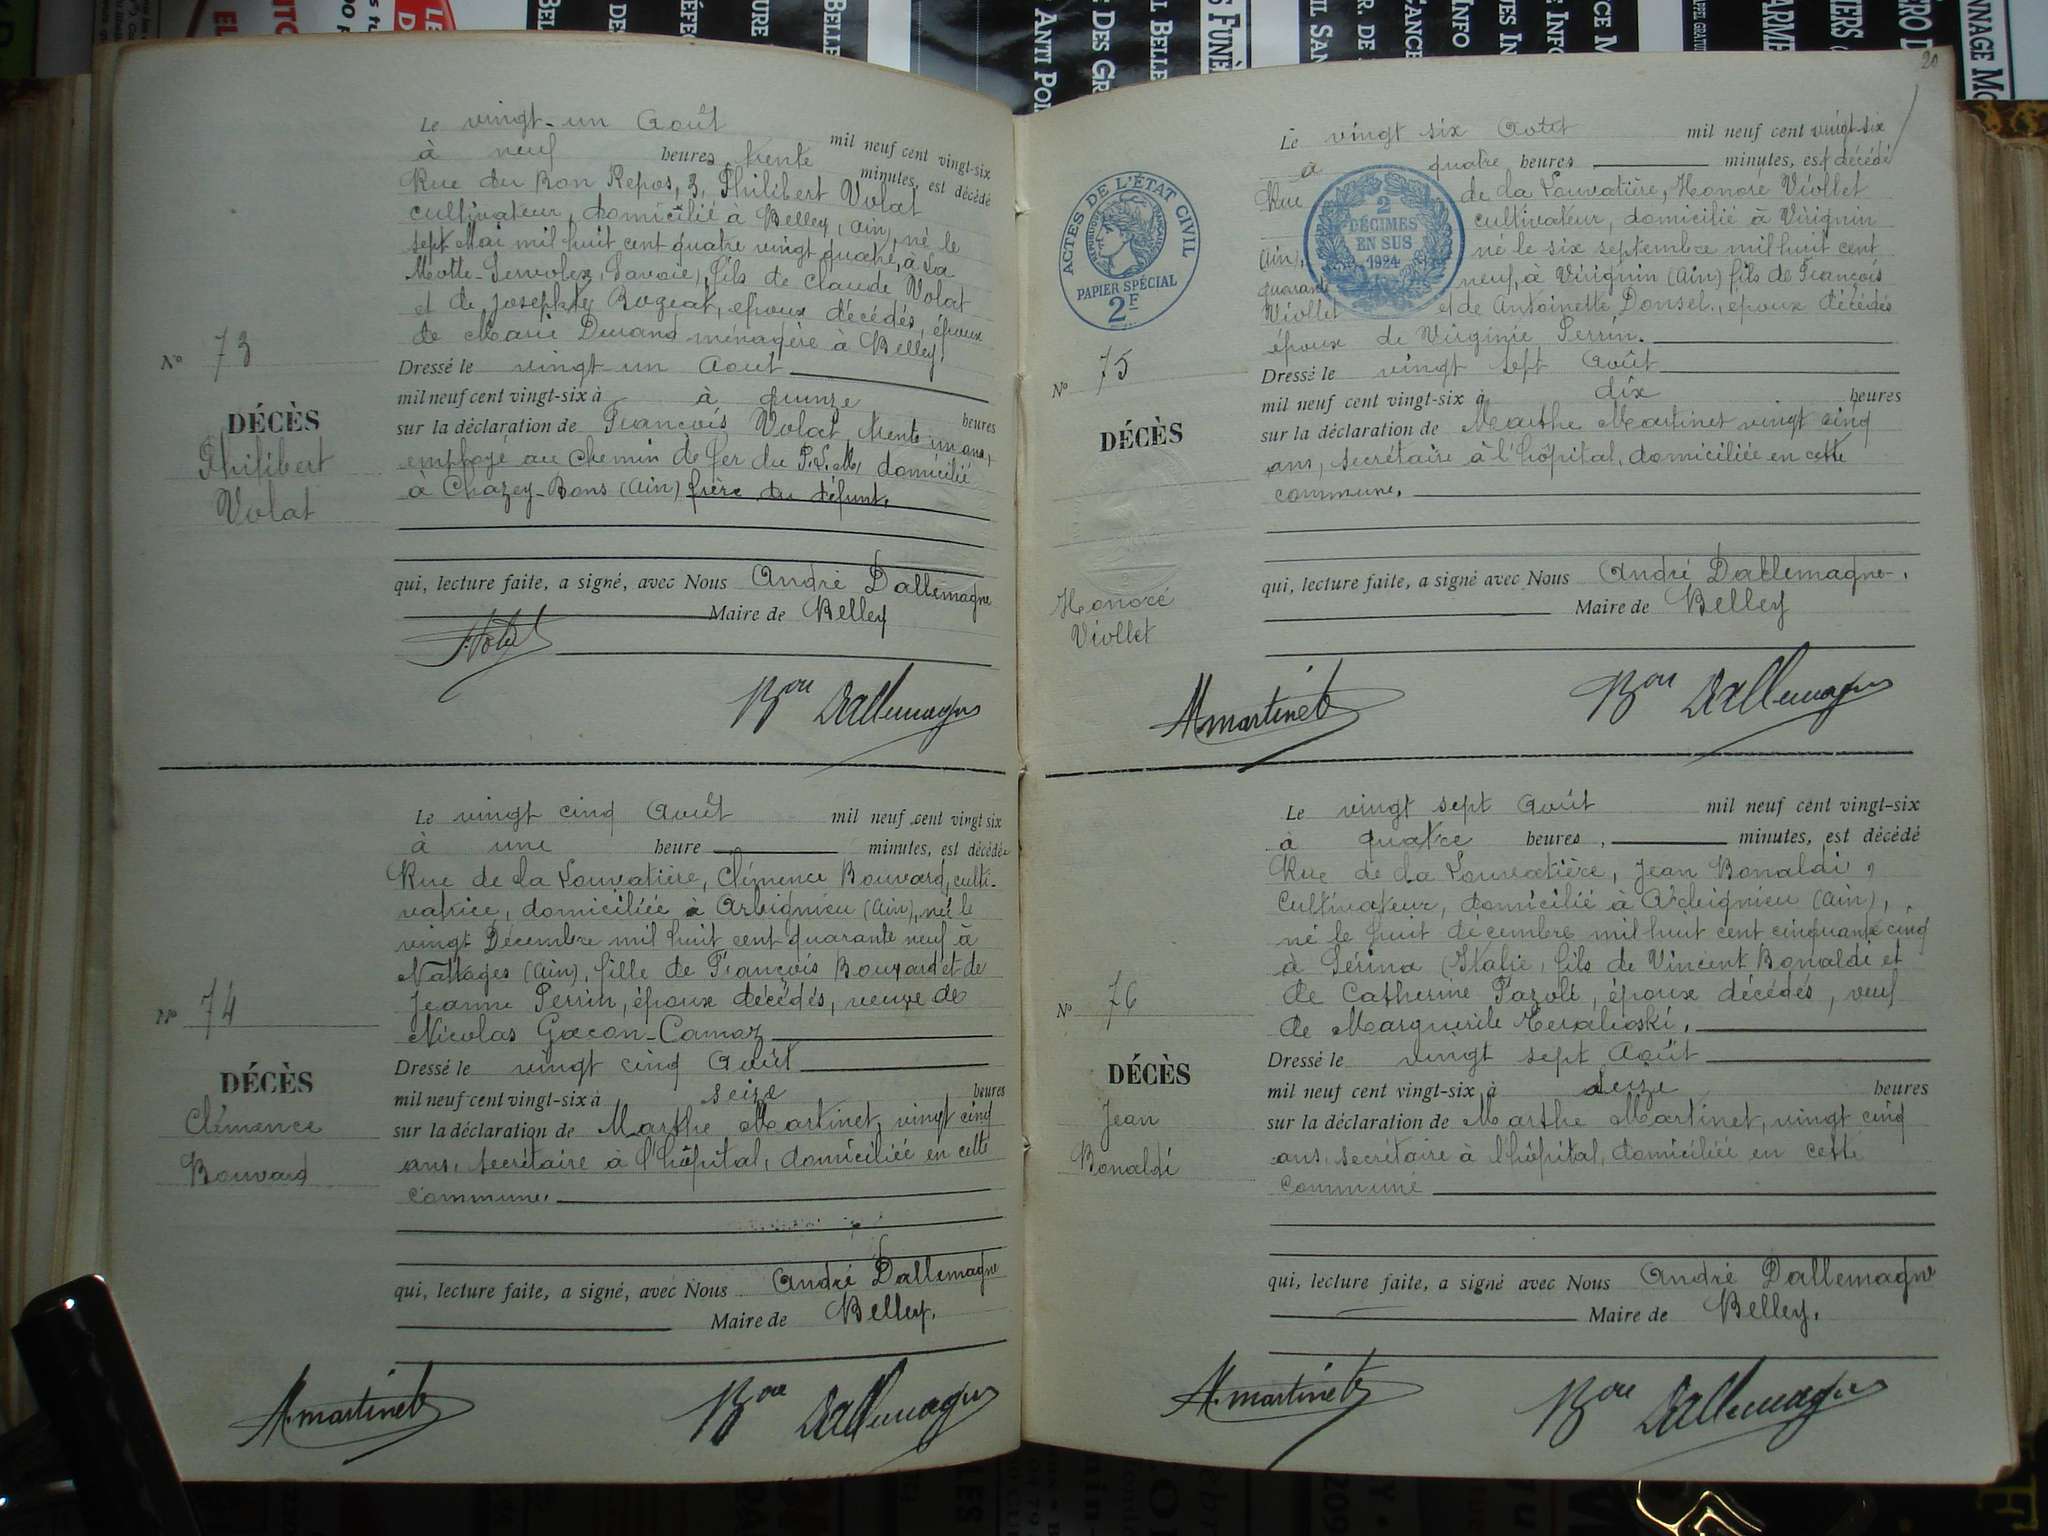 Le vingt-un Août mil neuf cent vingt-six
à neuf heures trente minutes, est décédé
Rue du Bon Repos, 3, Philibert Volat
cultivateur, domicilié à Belley, (Ain), né le
sept Mai mil huit cent quatre vingt quatre, à La
Motte-Servolex, (Savoie), fils de Claude Volat
et de Josephte Rogeat, époux décédés, époux
de Marie Durand ménagère à Belley.
Dressé le vingt-un Août
mil neuf cent vingt-six à à quinze heures
sur la déclaration de François Volat, trente un ans,
employé au Chemin de fer du P.L.M, domicilié
à Chazey-Bons (Ain) frère du défunt.
qui, lecture faite, a signé, avec Nous André Dallemagne
Maire de Belley
N° 73
DÉCÈS
Philibert
Volat
Volat
Bon Dallemagne
Le vingt cinq Août mil neuf cent vingt six
à une heure minutes, est décédée
Rue de la Louvatière, Clémence Bouvard, culti-
vatrice, domiciliée à Arbignieu (Ain), née le
vingt Décembre mil huit cent quarante neuf à
Nattages (Ain), fille de François Bouvard et de
Jeanne Perrin, époux décédés, veuve de
Nicolas Gacon-Camoz
Dressé le vingt cinq Août
mil neuf cent vingt-six à seize heures
sur la déclaration de Marthe Martinet, vingt cinq
ans, secrétaire à l'hôpital, domiciliée en cette
commune.
qui, lecture faite, a signé, avec Nous André Dallemagne
Maire de Belley.
N° 74
DÉCÈS
Clémence
Bouvard
M. Martinet
Bon Dallemagne
20
Le vingt six Août mil neuf cent vingt-six
à quatre heures minutes, est décédé
Rue de la Louvatière, Honoré Viollet
cultivateur, domicilié à Virignin
(Ain), né le six septembre mil huit cent
quarante neuf, à Virignin (Ain) fils de François
Viollet et de Antoinette Donsel, époux décédés
époux de Virginie Perrin.
ACTES DE L'ÉTAT CIVIL
PAPIER SPÉCIAL
2F
2
DÉCIMES
EN SUS
1924
Dressé le vingt sept Août
mil neuf cent vingt-six à dix heures
sur la déclaration de Marthe Martinet vingt cinq
ans, secrétaire à l'hôpital, domiciliée en cette
commune.
qui, lecture faite, a signé avec Nous André Dallemagne.
Maire de Belley
N° 75
DÉCÈS
Honoré
Viollet
M. Martinet
Bon Dallemagne
Le vingt sept Août mil neuf cent vingt-six
à quatre heures, minutes, est décédé
Rue de la Louvatière, Jean Bonaldi,
cultivateur, domicilié à Arbignieu (Ain),
né le huit décembre mil huit cent cinquante cinq
à Sérina (Italie, fils de Vincent Bonaldi et
de Catherine Pazoli, époux décédés, veuf
de Marguerite
Dressé le vingt sept Août
mil neuf cent vingt-six à seize heures
sur la déclaration de Marthe Martinet, vingt cinq
ans, secrétaire à l'hôpital, domiciliée en cette
commune
qui, lecture faite, a signé avec Nous André Dallemagne
Maire de Belley.
N° 76
DÉCÈS
Jean
Bonaldi
M. Martinet
Bon Dallemagne